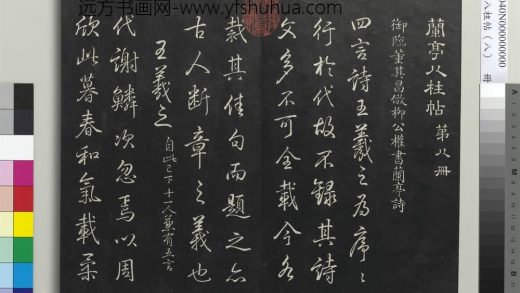 远方书画网-www.yfshuhua.com
蘭亭八柱帖 第八冊
御臨董其昌倣柳公權書蘭亭詩
四言詩王羲之為序序
行於代故不錄其詩
文多不可全載今各
裁其佳句而題之亦
古人斷章之義也
王羲之 自此已下十一人兼有五言
代謝鱗次忽焉以周
欣此暮春和氣載柔
八柱帖（八） 冊